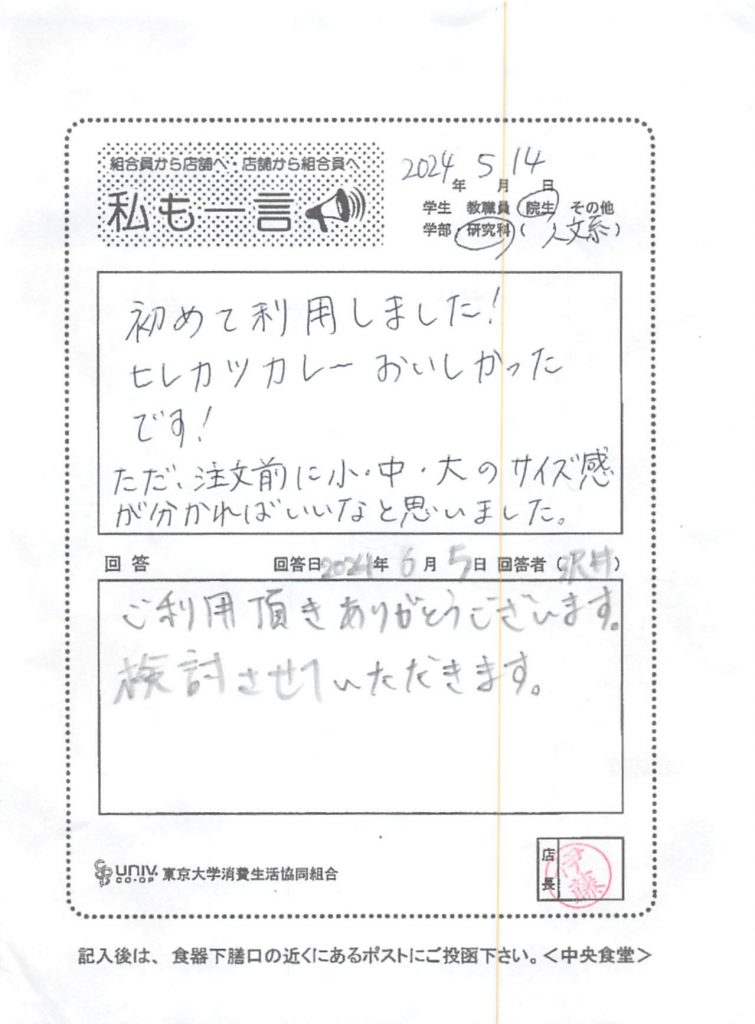 組合員から店舗へ・店舗から組合員へ
私も一言
2024年 5月 14日
学生 教職員 院生 その他
学部・研究科( 人文系 )
初めて利用しました!
ヒレカツカレー おいしかった
です!
ただ、注文前に小・中・大のサイズ感
が分かればいいなと思いました。
回答 回答日2024年 6月 5日 回答者(沢井)
ご利用頂きありがとうございます。
検討させていただきます。
店長
伊藤
UNIV. CO-OP 東京大学消費生活協同組合
記入後は、食器下膳口の近くにあるポストにご投函下さい。<中央食堂>